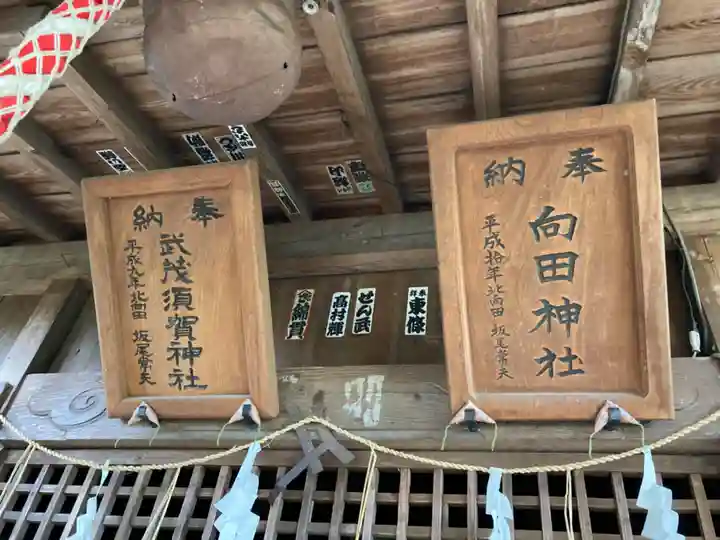 奉納
向田神社
平成拾年北向田 坂尾常夫
奉納
武茂須賀神社
平成九年北向田 坂尾常夫
東條
せん武
高村輝